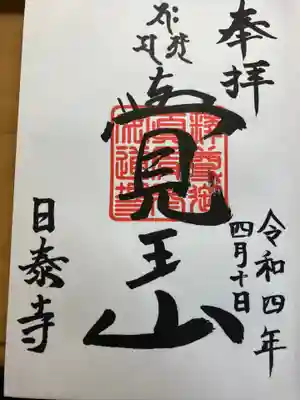 奉拝
令和四年
四月十日
覚王山
日泰寺